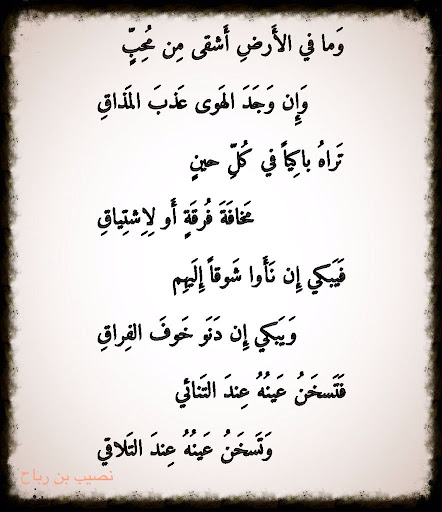 وَما في الأَرضِ أَشقى مِن مُحِبٍّ
وَإِن وَجَدَ الهَوى عَذبَ المَذاقِ
تَراهُ باكِياً في كُلِّ حينٍ
مَخافَةَ فُرقَةٍ أَو لِاِشتِياقِ
فَيَبكي إِن نَأَوا شَوقاً إِلَيهِم
وَيَبكي إِن دَنَو خَوفَ الفِراقِ
فَتَسخَنُ عَينُهُ عِندَ التَنائي
وَتَسخَنُ عَينُهُ عِندَ التَلاقي
نصيب بن رباح